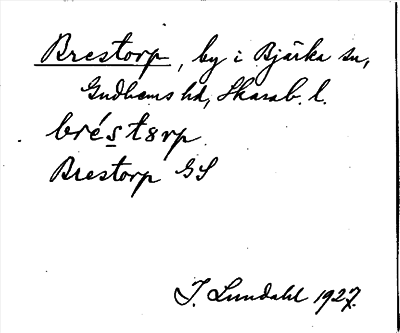 Brestorp, by i Bjärka sn,
Gudhems hd, Skarab. l.
bréstørp
Brestorp GS
I. Lundahl 1927.